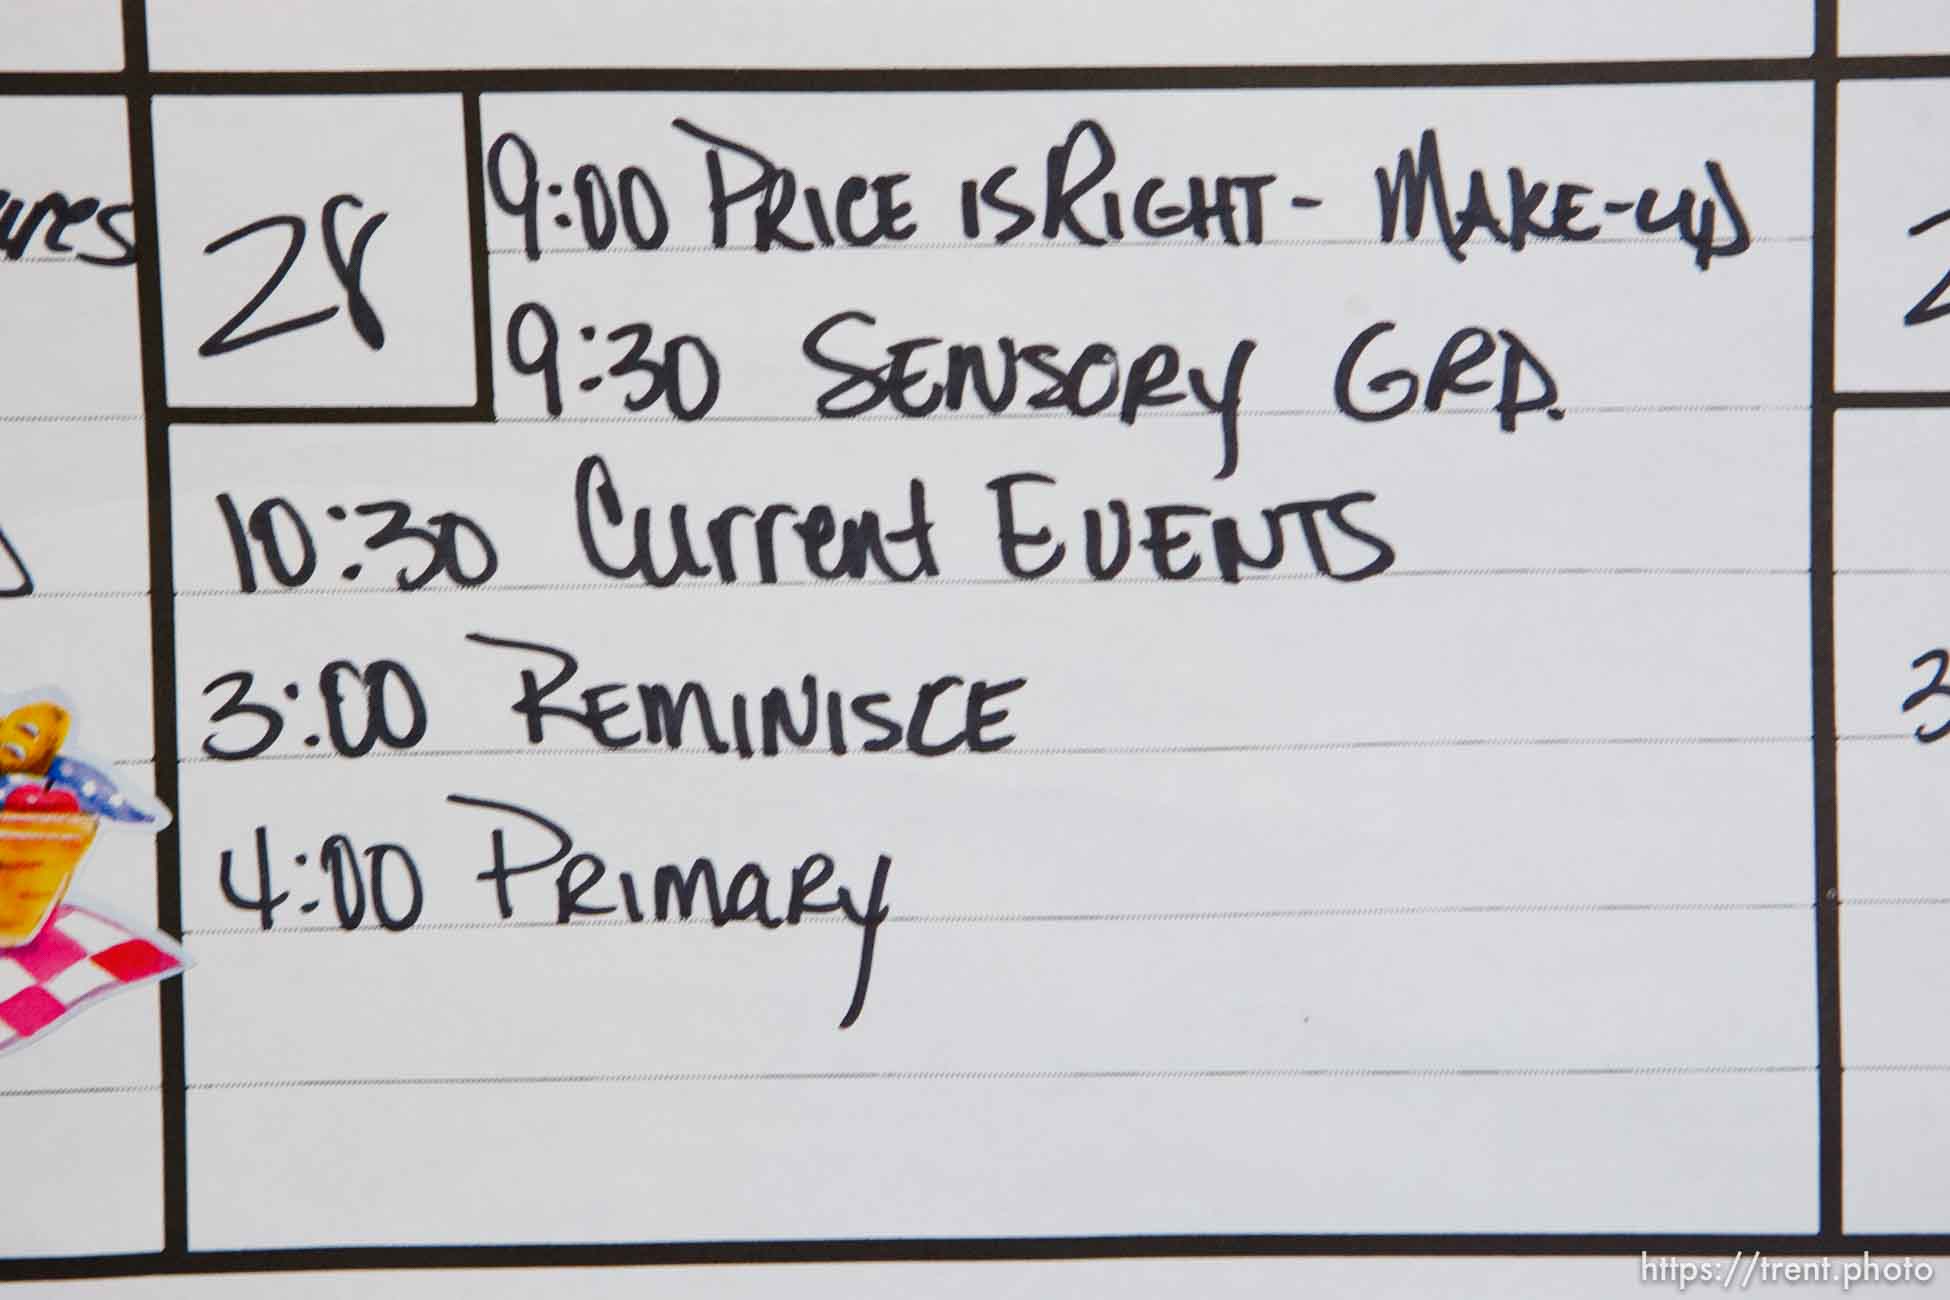 ures
28
9:00 PRICE IS RIGHT - MAKE-UP
9:30 SENSORY GRP.
10:30 Current EVENTS
3:00 REMINISCE
4:00 PRIMARY
2
3
https://trent.photo